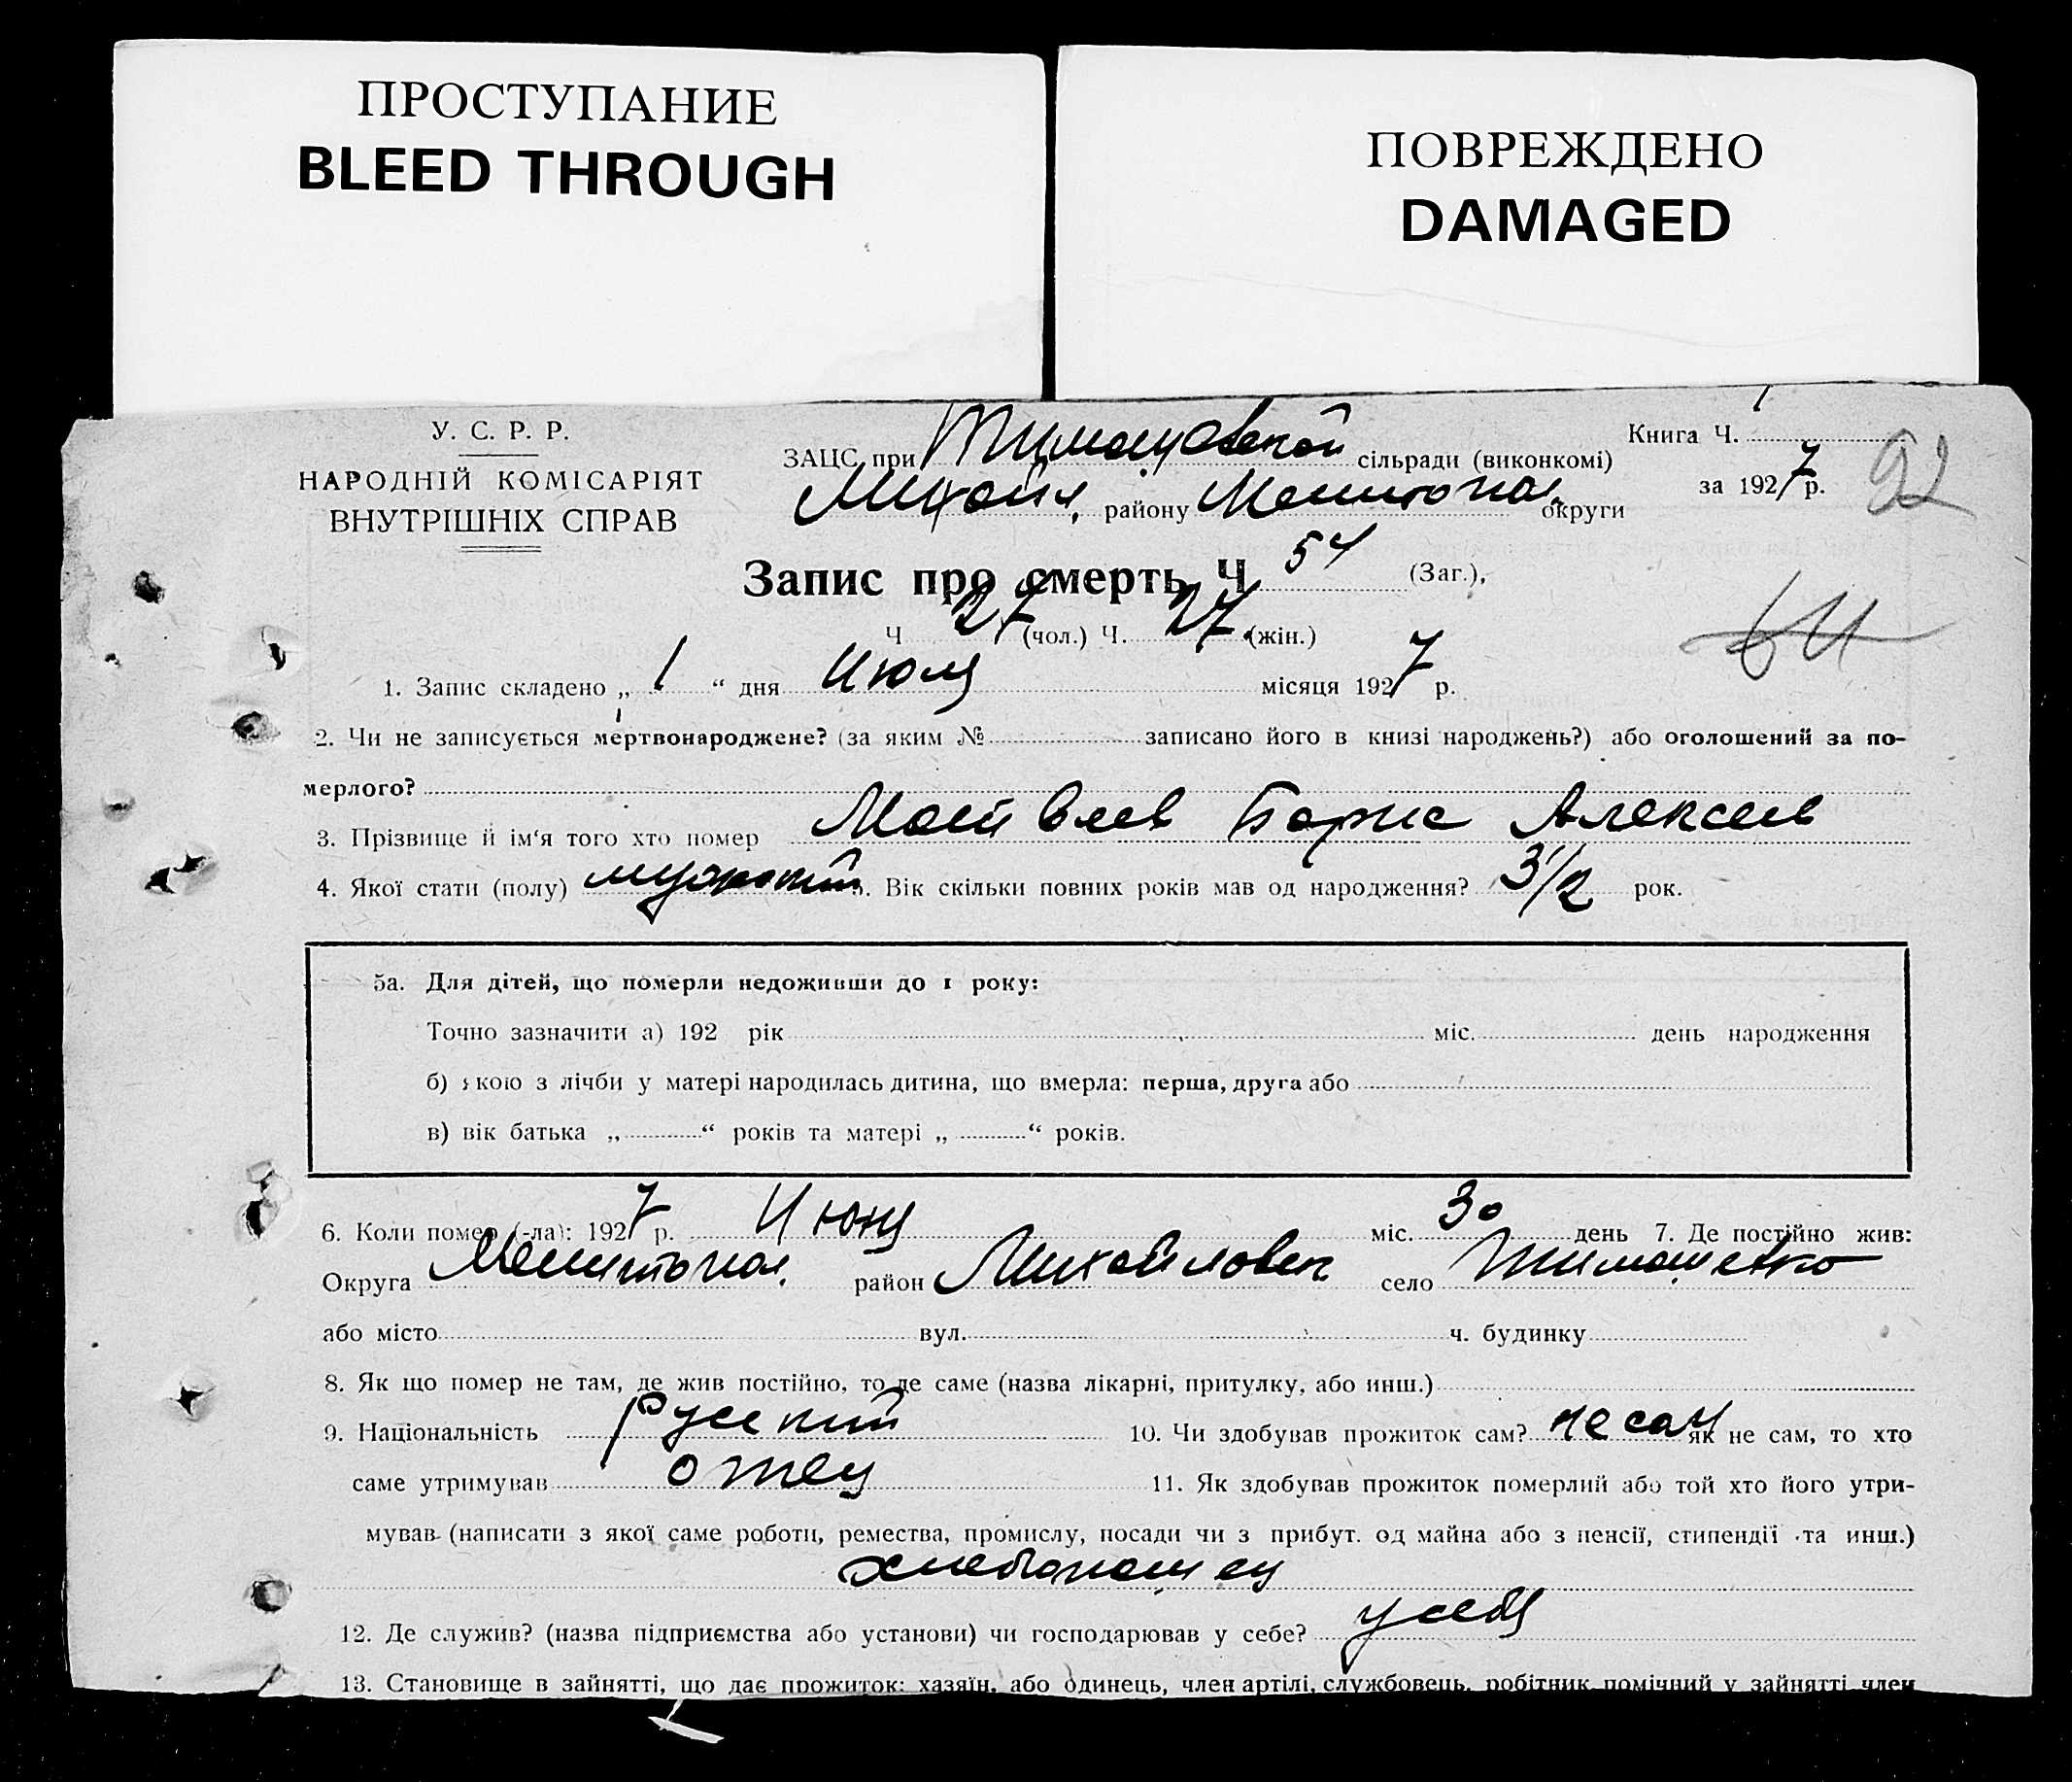 ПРОСТУПАНИЕ
BLEED THROUGH
ПОВРЕЖДЕНО
DAMAGED
У. С. Р. Р.
НАРОДНІЙ КОМІСАРІЯТ
ВНУТРІШНІХ СПРАВ
ЗАЦС при Тимошовской сільради (виконкомі)
Михайл. району Мелитопол. округи
Книга Ч. 1
за 1927 р.
92
Запис про смерть Ч 54 (Заг.),
Ч 27 (чол.) Ч. 27 (жін.)
1. Запис складено „ 1 “ дня Июля місяця 1927 р.
2. Чи не записується мертвонароджене? (за яким № записано його в книзі народжень?) або оголошений за по-
мерлого?
3. Прізвище й ім‘я того хто помер Моисеев Борис Алексеев
4. Якої стати (полу) мужский 5. Вік скільки повних років мав од народження? 3 1/2 рок.
5а. Для дітей, що померли недоживши до 1 року:
Точно зазначити а) 192 рік міс. день народження
б) якою з лічби у матері народилась дитина, що вмерла: перша, друга або
в) вік батька „ “ років та матері „ “ років.
6. Коли помер (-ла): 1927 р. Июня міс. 30 день 7. Де постійно жив:
Округа Мелитопол. район Михайловск село Тимошевко
або місто вул. ч. будинку
8. Як що помер не там, де жив постійно, то де саме (назва лікарні, притулку, або инш.)
9. Національність Русский 10. Чи здобував прожиток сам? не сам як не сам, то хто
саме утримував отец 11. Як здобував прожиток померлий або той хто його утри-
мував (написати з якої саме роботи, ремества, промислу, посади чи з прибут. од майна або з пенсії, стипендії та инш.)
хлебопашец
12. Де служив? (назва підприємства або установи) чи господарював у себе? у себя
13. Становище в зайнятті, що дає прожиток: хазяїн, або одинець, член артілі, службовець, робітник помічний у зайнятті член